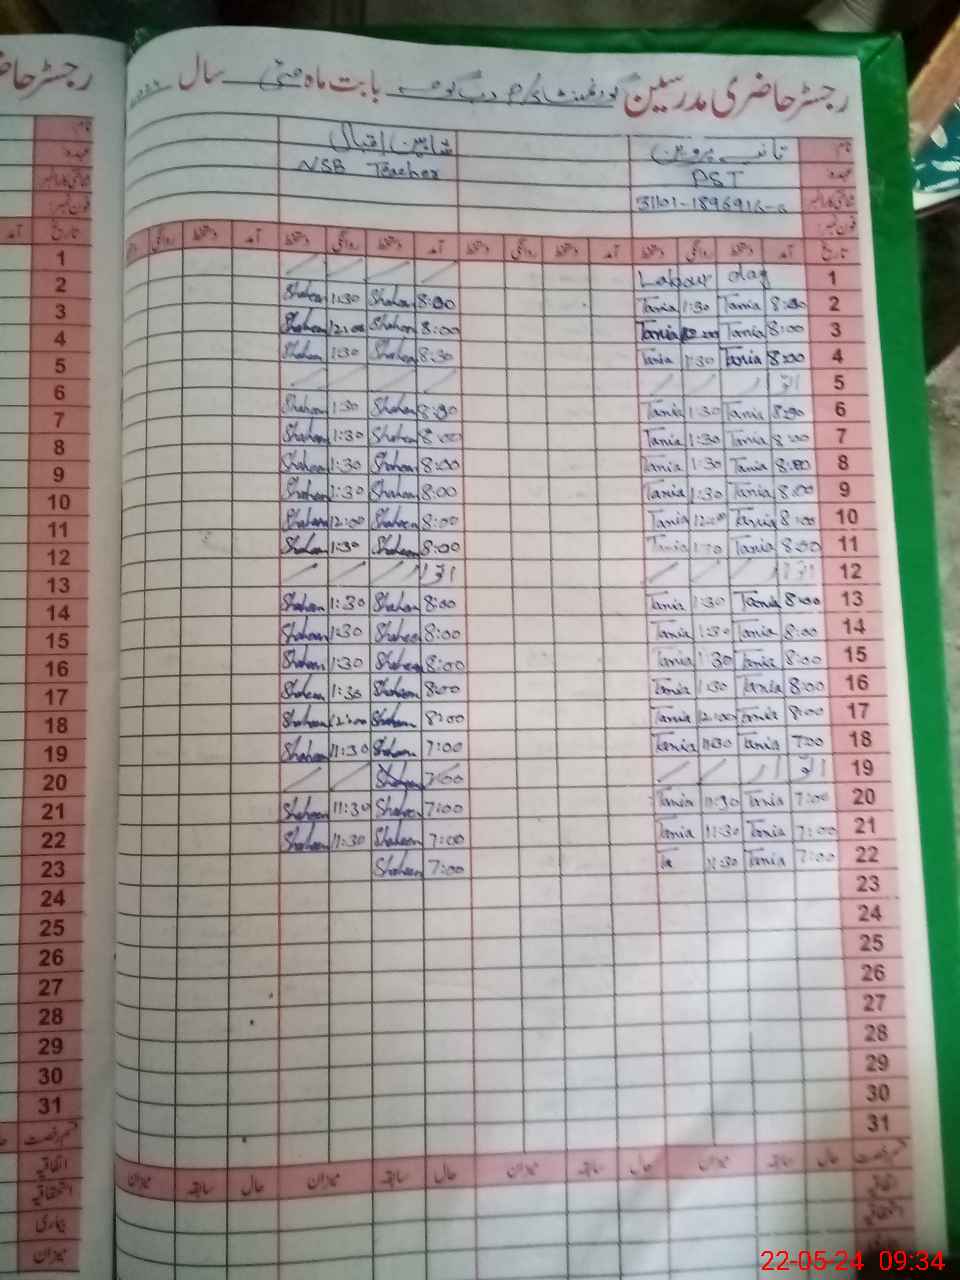 رجسٹر حاضری مدرسین گورنمنٹ بابت ماہ مئی سال
رجسٹر حاضر
نام تانیہ پروین شاہین اقبال
عہدہ PST NSB Teacher
شناختی کارڈ نمبر
فون نمبر
تاریخ آمد دستخط روانگی دستخط آمد دستخط روانگی دستخط آمد دستخط روانگی دستخط آمد دستخط روانگی
1 Labour day
2 8:00 Tania 1:30 Tania 8:00 Shaheen 1:30 Shaheen
3 8:00 Tania 12:00 Tania 8:00 Shaheen 12:00 Shaheen
4 8:00 Tania 1:30 Tania 8:30 Shaheen 1:30 Shaheen
5 اتوار
6 8:00 Tania 1:30 Tania 8:00 Shaheen 1:30 Shaheen
7 8:00 Tania 1:30 Tania 8:00 Shaheen 1:30 Shaheen
8 8:00 Tania 1:30 Tania 8:00 Shaheen 1:30 Shaheen
9 8:00 Tania 1:30 Tania 8:00 Shaheen 1:30 Shaheen
10 8:00 Tania 12:00 Tania 8:00 Shaheen 12:00 Shaheen
11 8:00 Tania 1:30 Tania 8:00 Shaheen 1:30 Shaheen
12 اتوار اتوار
13 8:00 Tania 1:30 Tania 8:00 Shaheen 1:30 Shaheen
14 8:00 Tania 1:30 Tania 8:00 Shaheen 1:30 Shaheen
15 8:00 Tania 1:30 Tania 8:00 Shaheen 1:30 Shaheen
16 8:00 Tania 1:30 Tania 8:00 Shaheen 1:30 Shaheen
17 8:00 Tania 12:00 Tania 8:00 Shaheen 12:00 Shaheen
18 7:00 Tania 11:30 Tania 7:00 Shaheen 11:30 Shaheen
19 اتوار 7:00 Shaheen
20 7:00 Tania 11:30 Tania 7:00 Shaheen 11:30 Shaheen
21 7:00 Tania 11:30 Tania 7:00 Shaheen 11:30 Shaheen
22 7:00 Tania 11:30 Ta 7:00 Shaheen
23
24
25
26
27
28
29
30
31
قسم رخصت حال سابقہ میزان حال سابقہ میزان حال سابقہ میزان حال سابقہ میزان
اتفاقیہ
استحقاقیہ
نام
عہدہ
شناختی کارڈ نمبر
فون نمبر
تاریخ آمد
1
2
3
4
5
6
7
8
9
10
11
12
13
14
15
16
17
18
19
20
21
22
23
24
25
26
27
28
29
30
31
قسم رخصت
اتفاقیہ
استحقاقیہ
بیماری
میزان
22-05-24 09:34